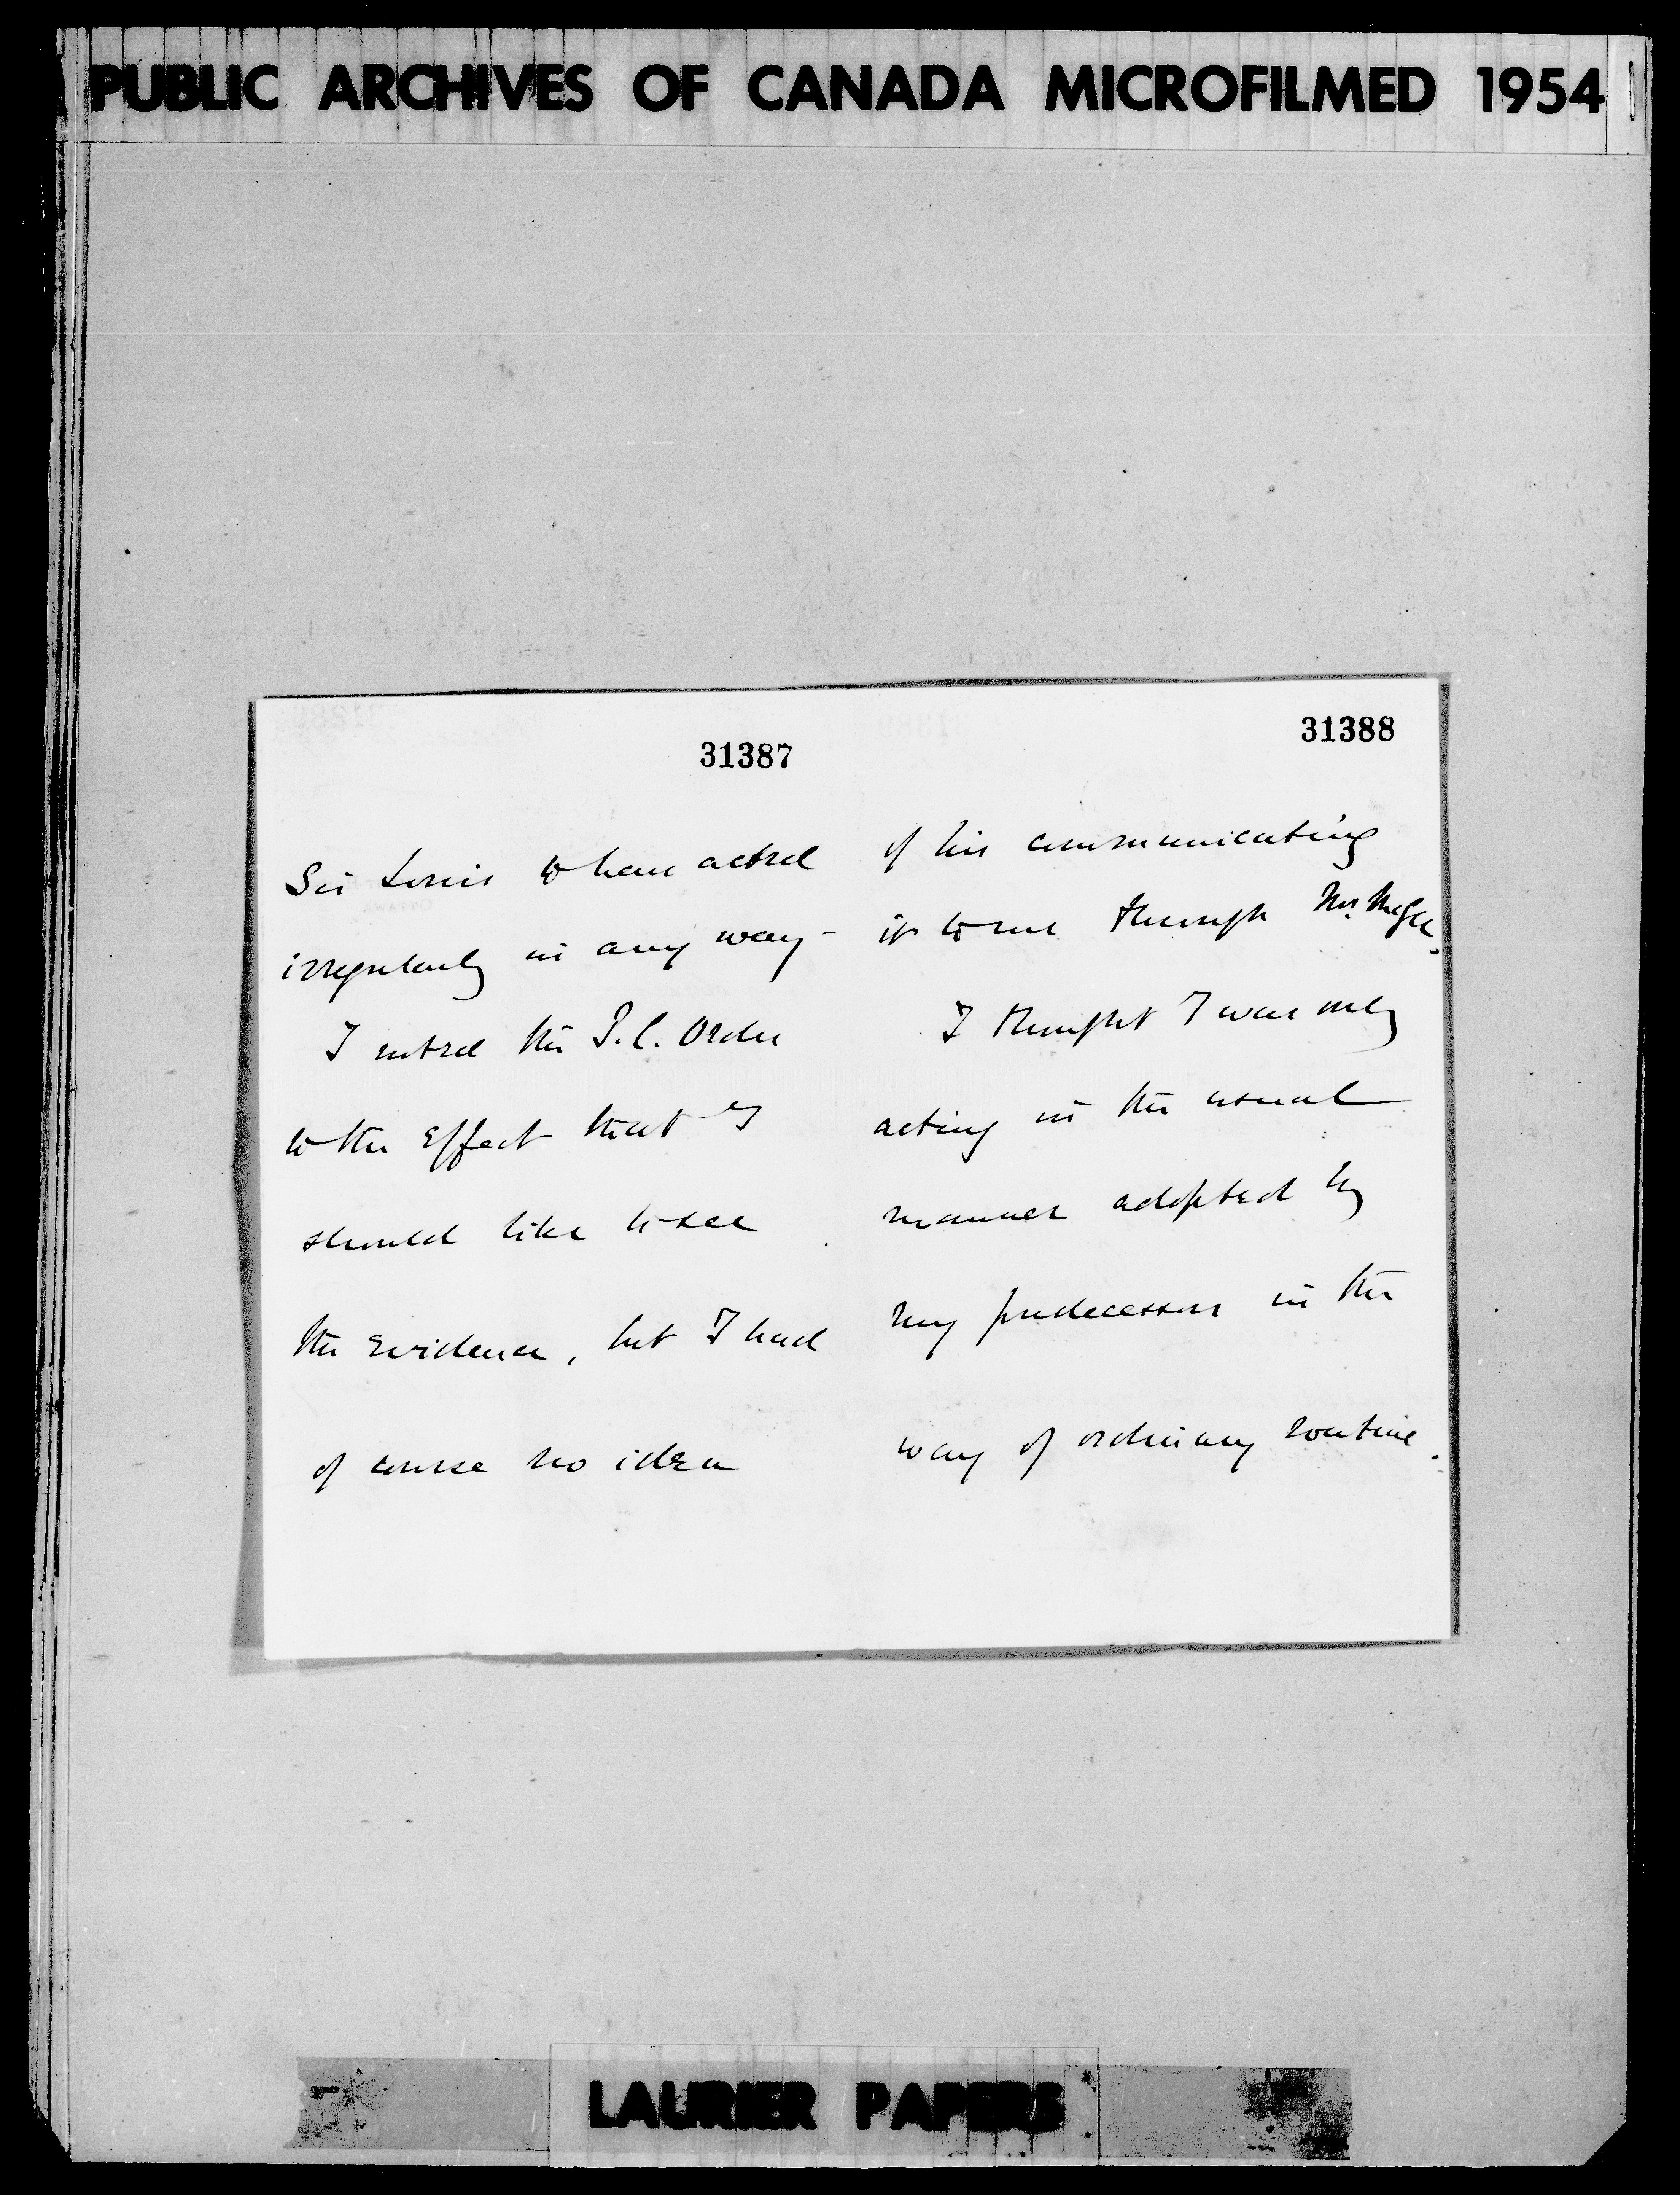 PUBLIC ARCHIVES OF CANADA MICROFILMED 1954
31387
Sir Louis to have acted
irregularly in any way -
I noted the P.C. Order
to the effect that I
should like to see
the Evidence, but I had
of course no idea
31388
of his communicating
it to me through Mr. McGee.
I thought I was only
acting in the usual
manner adopted by
my predecessors in the
way of ordinary routine.
LAURIER PAPERS